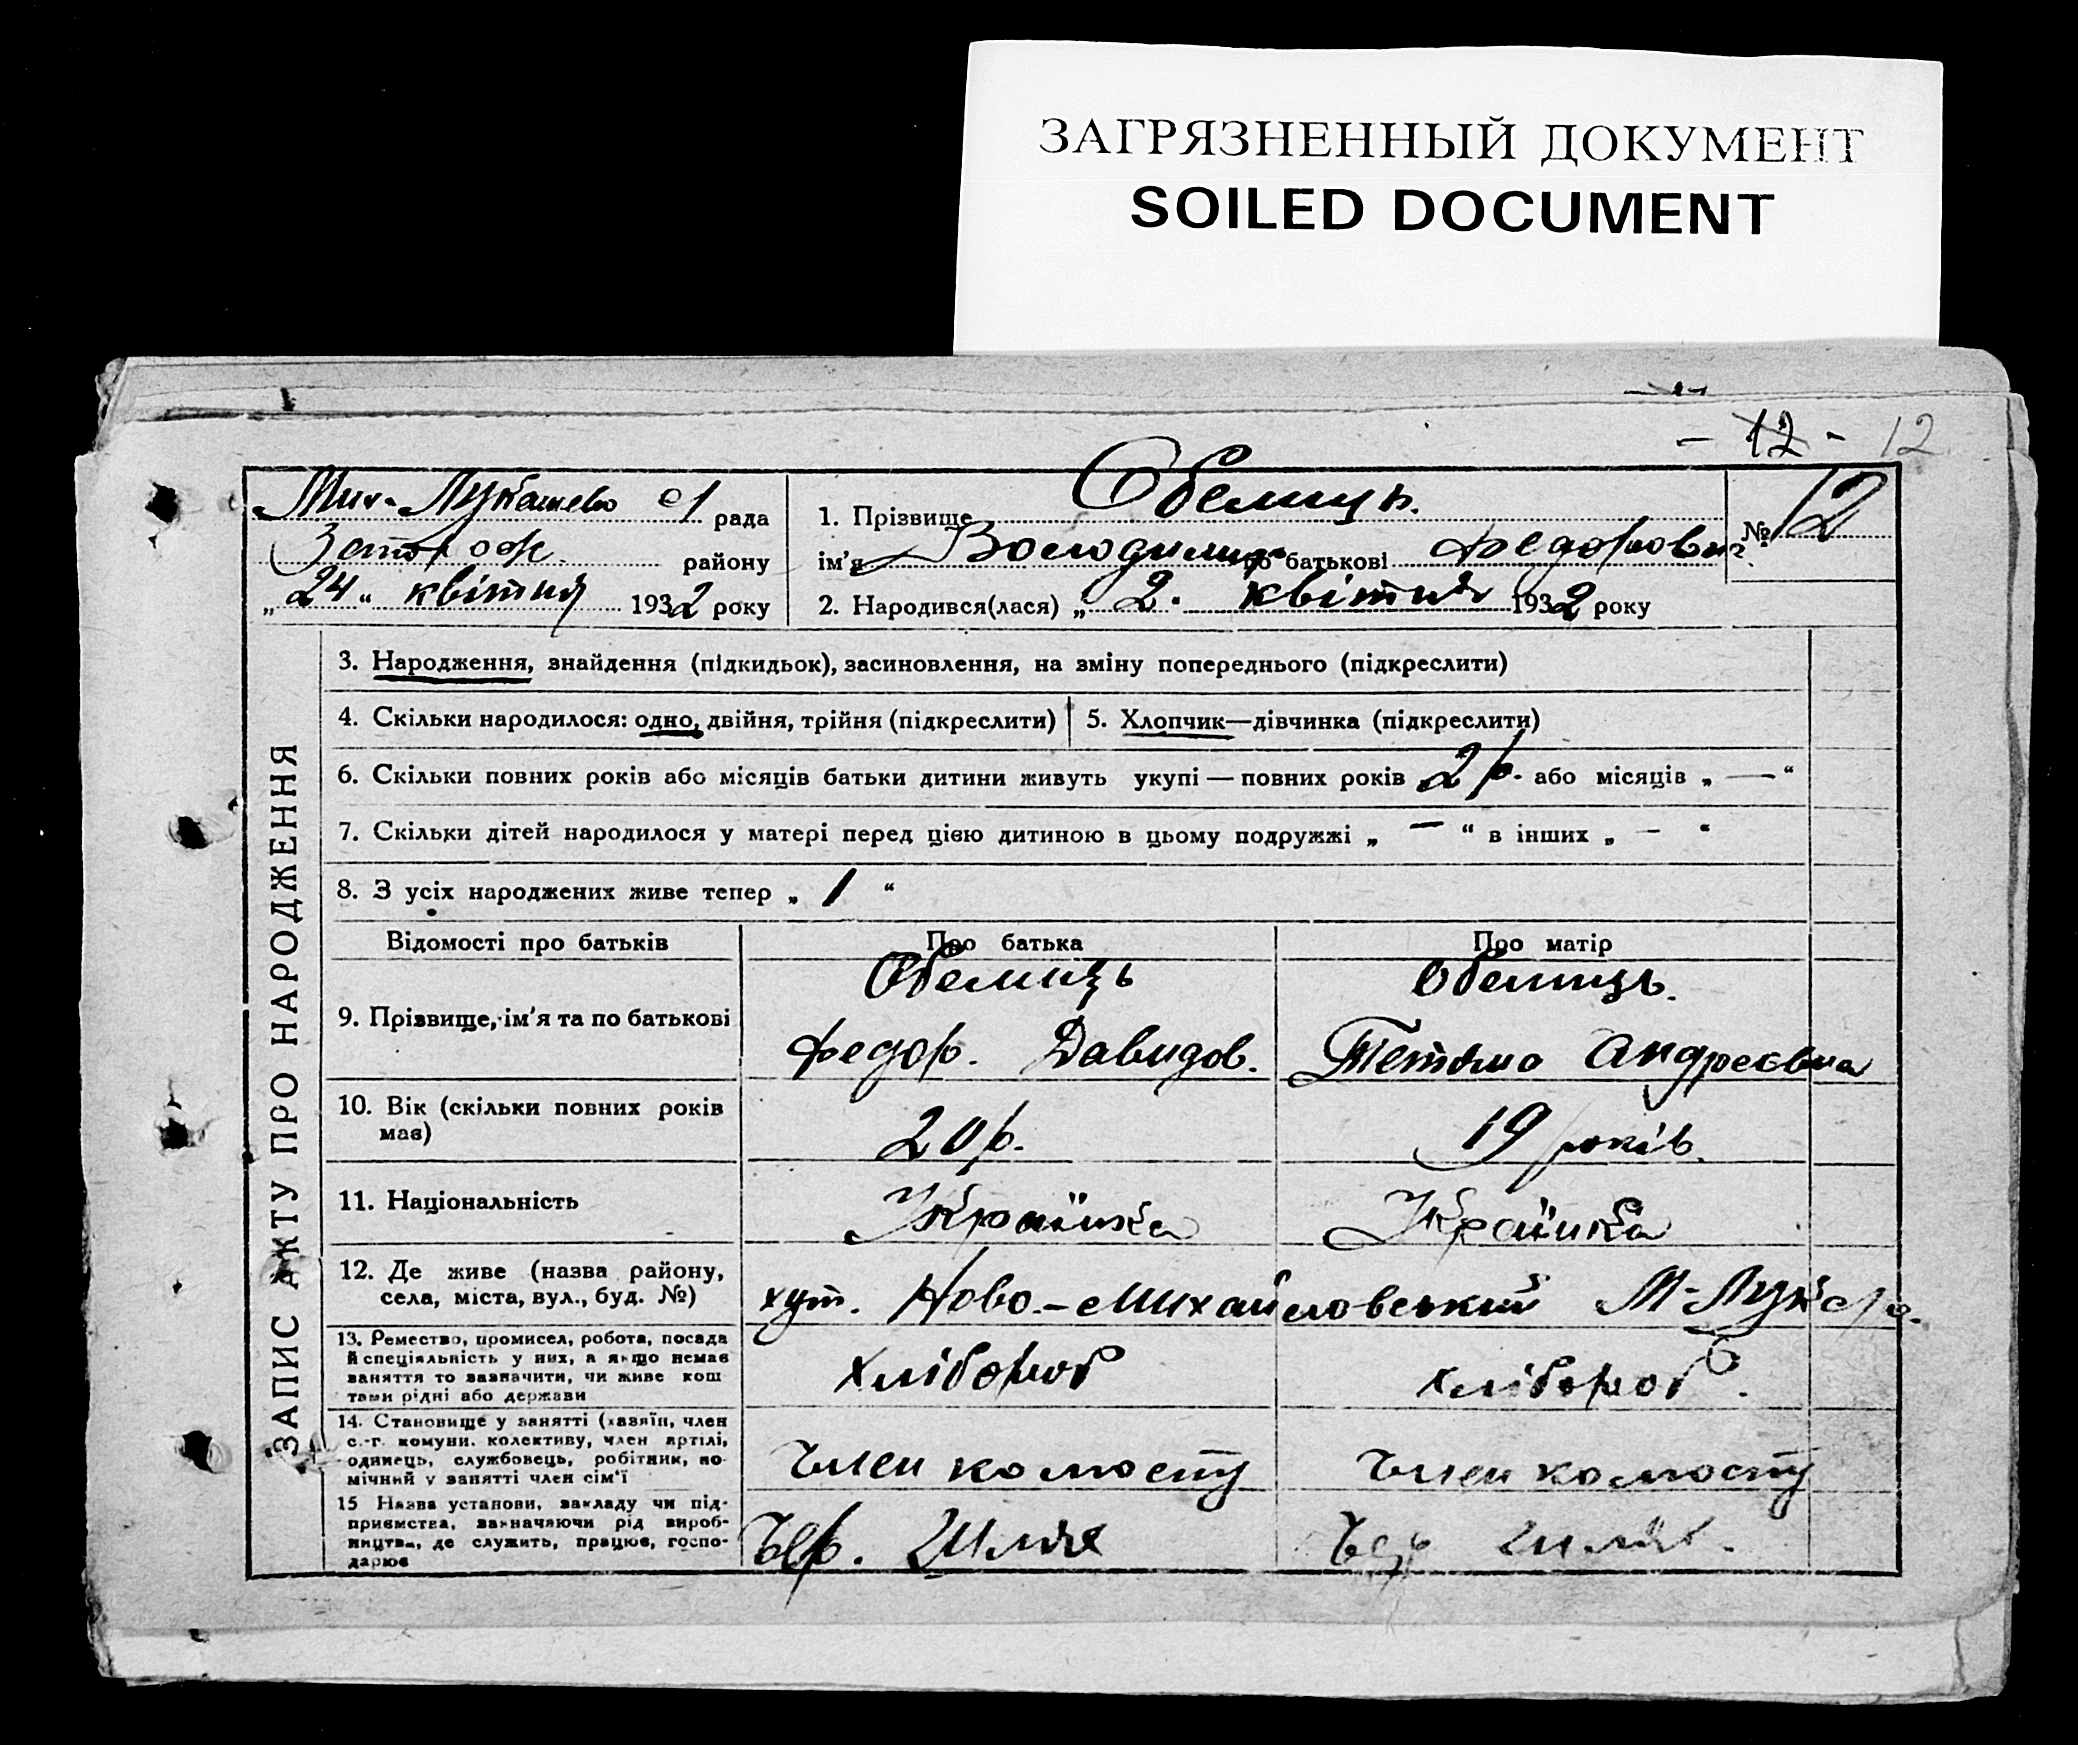 ЗАГРЯЗНЕННЫЙ ДОКУМЕНТ
SOILED DOCUMENT
- 12 - 12
Мих-Лукашево с/ рада
району
„24“ квітня 1932 року
1. Прізвище Обемиць.
ім'я Володимир по батькові Федорович
№ 12
2. Народився(лася) „ 2. квітня 1932 року
ЗАПИС АКТУ ПРО НАРОДЖЕННЯ
3. Народження, знайдення (підкидьок), засиновлення, на зміну попереднього (підкреслити)
4. Скільки народилося: одно, двійня, трійня (підкреслити)
5. Хлопчик—дівчинка (підкреслити)
6. Скільки повних років або місяців батьки дитини живуть укупі — повних років 2 р. або місяців „ — “
7. Скільки дітей народилося у матері перед цією дитиною в цьому подружжі „ — “ в інших „ — “
8. З усіх народжених живе тепер „ 1 “
Відомості про батьків
Про батька
Про матір
9. Прізвище, ім'я та по батькові
Обемиць
Федор. Давидов.
Обемиць.
Тетяна Андреєвна
10. Вік (скільки повних років має)
20 р.
19 років.
11. Національність
Українка
Українка
12. Де живе (назва району,
села, міста, вул., буд. №)
хут. Ново-Михайловський М-Лук с/р.
13. Ремество, промисел, робота, посада
й спеціяльність у них, а якщо немає
заняття то зазначити, чи живе кош
тами рідні або держави
хлібороб
хлібороб.
14. Становище у занятті (хазяїн, член
с.-г. комуни, колективу, член артілі,
одинець, службовець, робітник, по-
мічний у занятті член сім'ї
Член колгоспу
Член колгоспу
15 Назва установи, закладу чи під-
приємства, зазначаючи рід вироб-
ництва, де служить, працює, госпо-
дарює
Чер. Шлях
Чер Шлях.